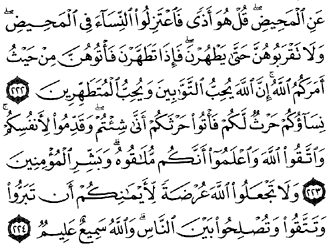 عَنِ ٱلْمَحِيضِ ۖ قُلْ هُوَ أَذًى فَٱعْتَزِلُوا۟ ٱلنِّسَآءَ فِى ٱلْمَحِيضِ ۖ
وَلَا تَقْرَبُوهُنَّ حَتَّىٰ يَطْهُرْنَ ۖ فَإِذَا تَطَهَّرْنَ فَأْتُوهُنَّ مِنْ حَيْثُ
أَمَرَكُمُ ٱللَّهُ ۚ إِنَّ ٱللَّهَ يُحِبُّ ٱلتَّوَّٰبِينَ وَيُحِبُّ ٱلْمُتَطَهِّرِينَ
﴿٢٢٢﴾ نِسَآؤُكُمْ حَرْثٌ لَّكُمْ فَأْتُوا۟ حَرْثَكُمْ أَنَّىٰ شِئْتُمْ ۖ وَقَدِّمُوا۟ لِأَنفُسِكُمْ ۚ
وَٱتَّقُوا۟ ٱللَّهَ وَٱعْلَمُوٓا۟ أَنَّكُم مُّلَٰقُوهُ ۗ وَبَشِّرِ ٱلْمُؤْمِنِينَ
﴿٢٢٣﴾ وَلَا تَجْعَلُوا۟ ٱللَّهَ عُرْضَةً لِّأَيْمَٰنِكُمْ أَن تَبَرُّوا۟
وَتَتَّقُوا۟ وَتُصْلِحُوا۟ بَيْنَ ٱلنَّاسِ ۗ وَٱللَّهُ سَمِيعٌ عَلِيمٌ ﴿٢٢٤﴾